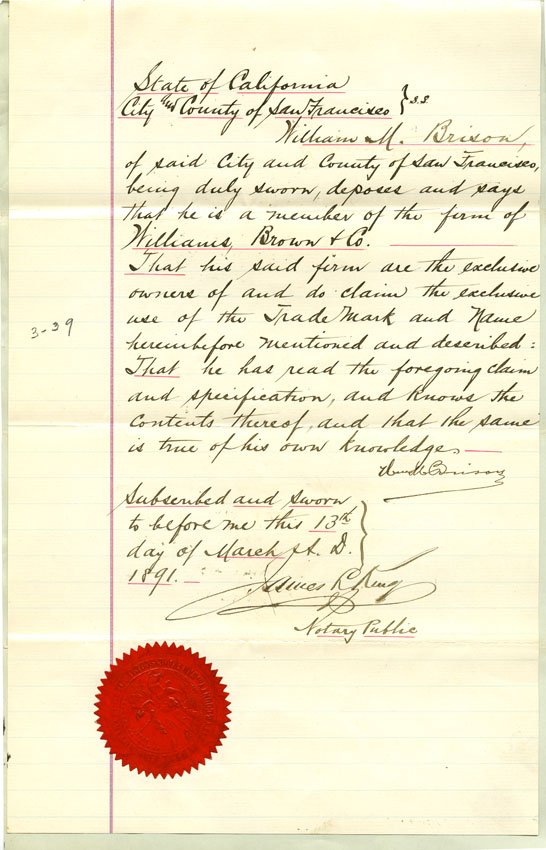 State of California
City and County of San Francisco } s.s
William M. Brison,
of said City and County of San Francisco,
being duly sworn, deposes and says
that he is a member of the firm of
Williams, Brown & Co.
That his said firm are the exclusive
owners of and do claim the exclusive
use of the Trade Mark and Name
3-39
hereinbefore mentioned and described:
That he has read the foregoing claim
and specification, and knows the
contents thereof, and that the same
is true of his own knowledge.
Wm M Brison
Subscribed and sworn
to before me this 13th
day of March A. D.
1891.
James L. King
Notary Public